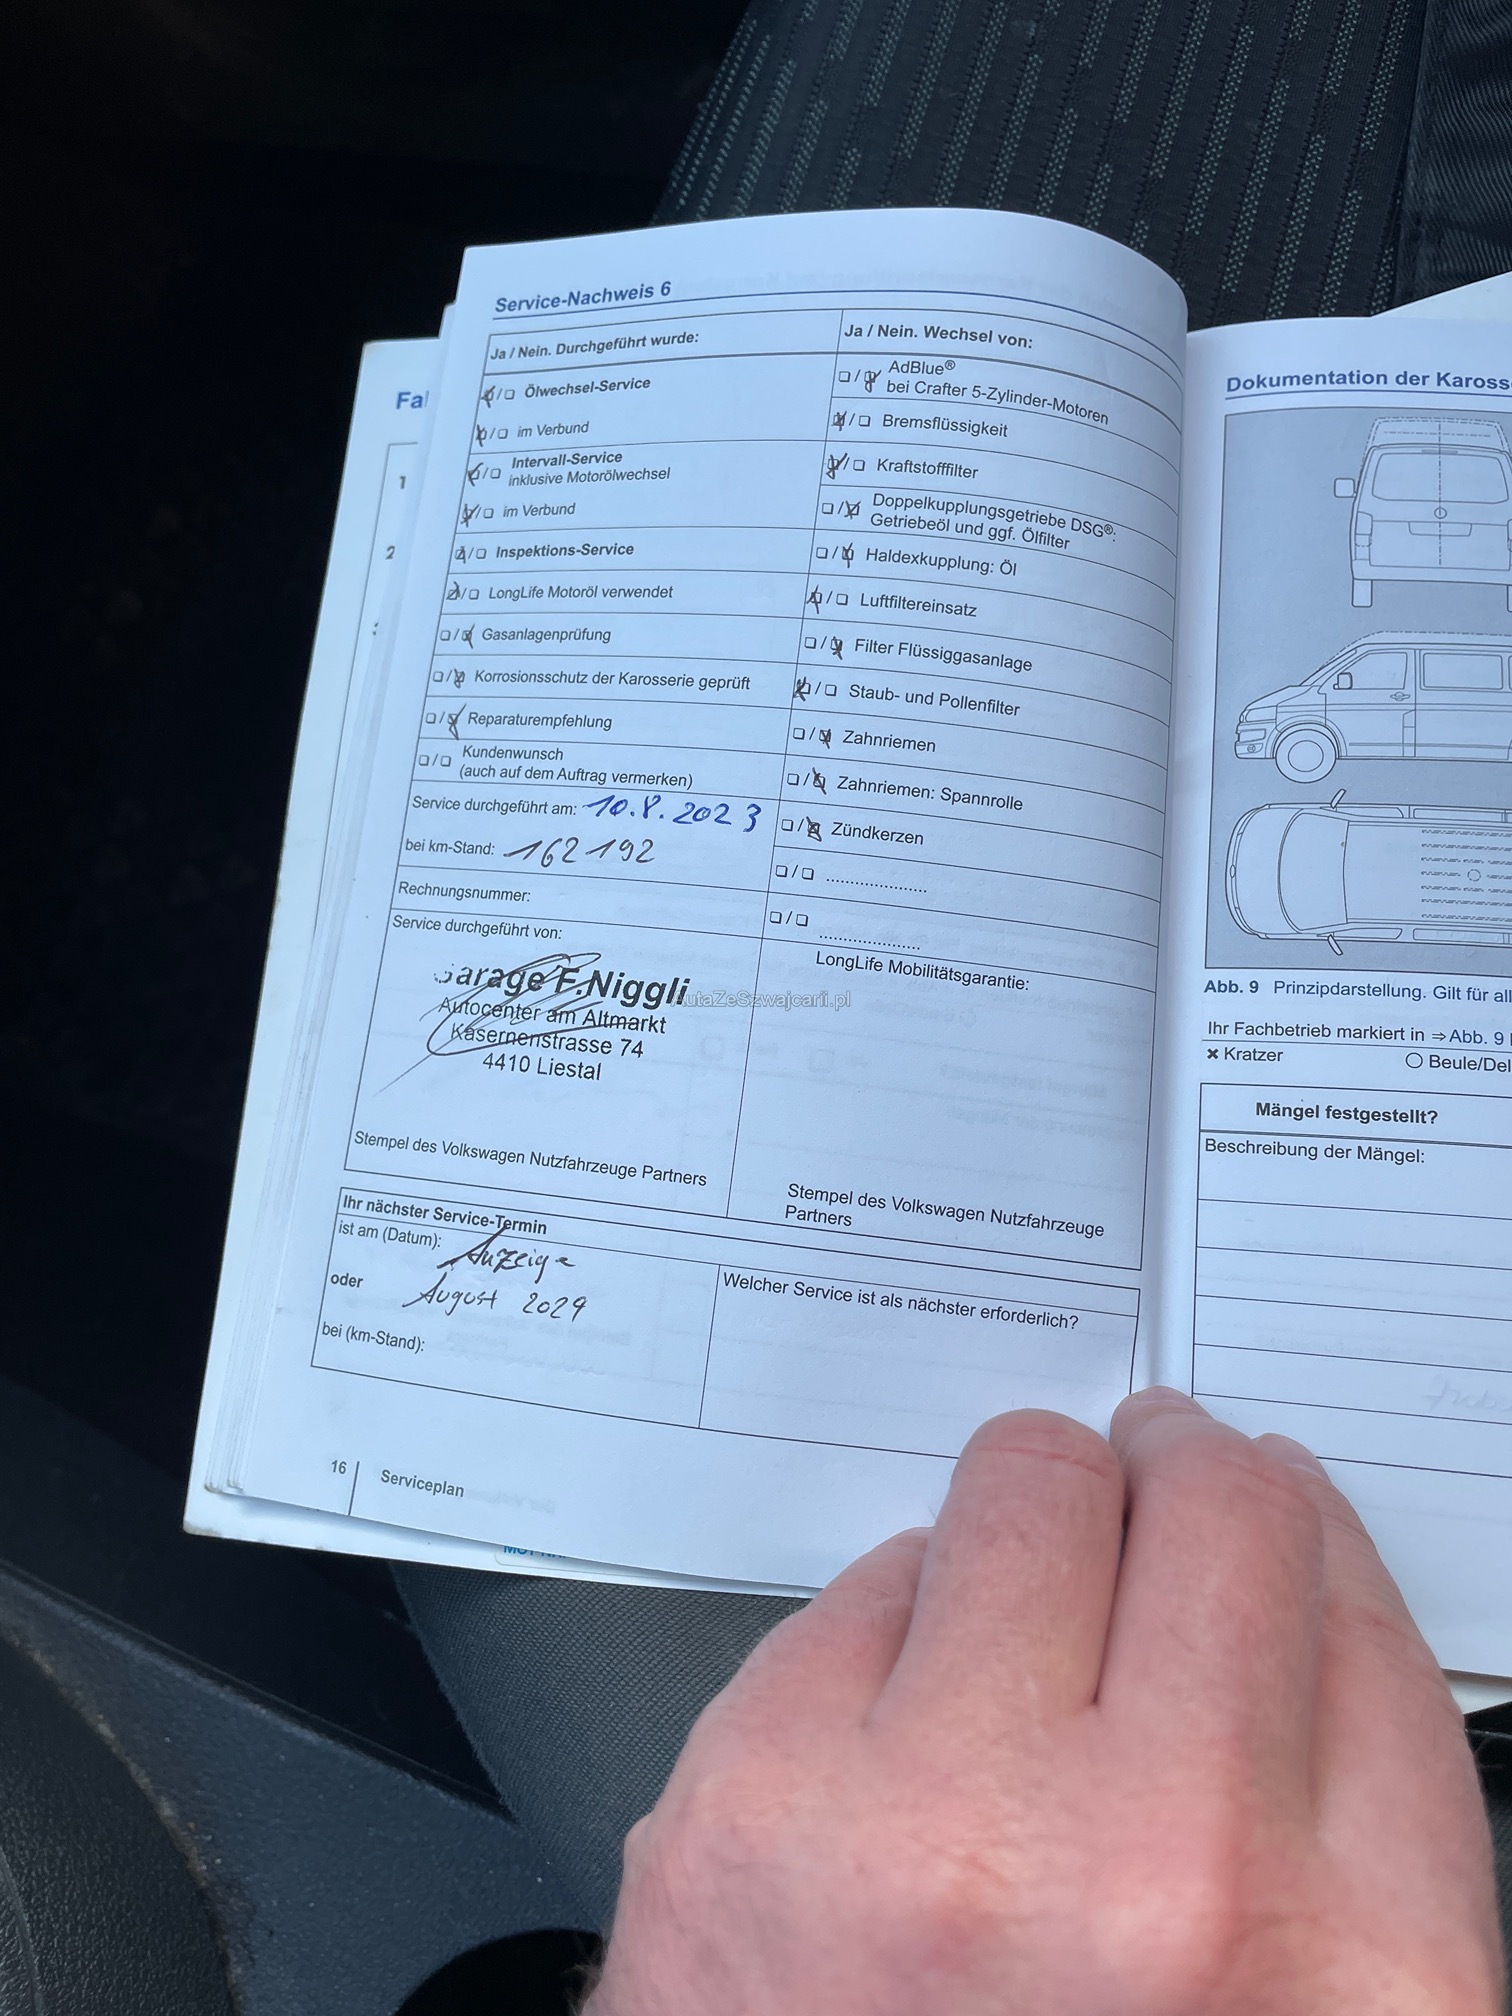 Service-Nachweis 6
Ja / Nein. Durchgeführt wurde:
Ölwechsel-Service
im Verbund
Intervall-Service
inklusive Motorölwechsel
im Verbund
Inspektions-Service
LongLife Motoröl verwendet
Gasanlagenprüfung
Korrosionsschutz der Karosserie geprüft
Reparaturempfehlung
Kundenwunsch
(auch auf dem Auftrag vermerken)
Service durchgeführt am: 10.8.2023
bei km-Stand: 162192
Rechnungsnummer:
Service durchgeführt von:
Garage F.Niggli
Autocenter am Altmarkt
Kasernenstrasse 74
4410 Liestal
Stempel des Volkswagen Nutzfahrzeuge Partners
Ja / Nein. Wechsel von:
AdBlue®
bei Crafter 5-Zylinder-Motoren
Bremsflüssigkeit
Kraftstofffilter
Doppelkupplungsgetriebe DSG®:
Getriebeöl und ggf. Ölfilter
Haldexkupplung: Öl
Luftfiltereinsatz
Filter Flüssiggasanlage
Staub- und Pollenfilter
Zahnriemen
Zahnriemen: Spannrolle
Zündkerzen
LongLife Mobilitätsgarantie:
Stempel des Volkswagen Nutzfahrzeuge
Partners
AutaZeSzwajcarii.pl
Ihr nächster Service-Termin
ist am (Datum): Anzeige
oder August 2024
bei (km-Stand):
Welcher Service ist als nächster erforderlich?
16 Serviceplan
Fa
1
2
Dokumentation der Kaross
Abb. 9 Prinzipdarstellung. Gilt für all
Ihr Fachbetrieb markiert in ⇒ Abb. 9
Kratzer
Beule/Del
Mängel festgestellt?
Beschreibung der Mängel: